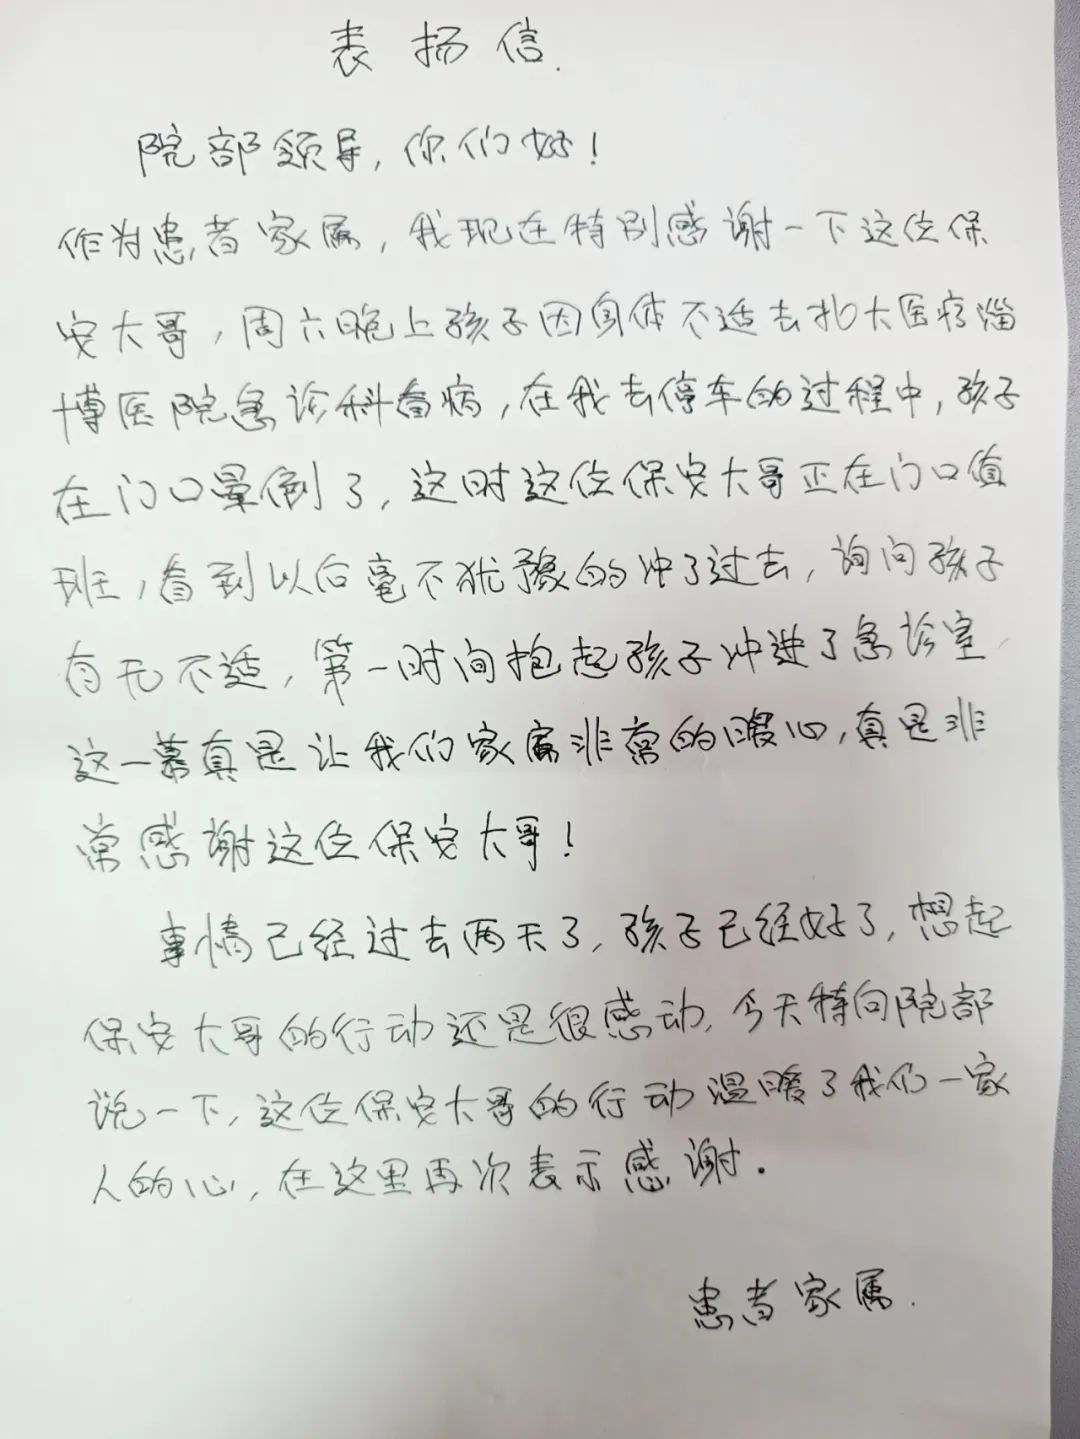 表扬信.
院部领导,你们好!
作为患者家属,我现在特别感谢一下这位保
安大哥,周六晚上孩子因身体不适去北大医疗淄
博医院急诊科看病,在我去停车的过程中,孩子
在门口晕倒了,这时这位保安大哥正在门口值
班,看到以后毫不犹豫的冲了过去,询问孩子
有无不适,第一时间抱起孩子冲进了急诊室,
这一幕真是让我们家属非常的暖心,真是非
常感谢这位保安大哥!
事情已经过去两天了,孩子已经好了,想起
保安大哥的行动还是很感动,今天特向院部
说一下,这位保安大哥的行动温暖了我们一家
人的心,在这里再次表示感谢.
患者家属.